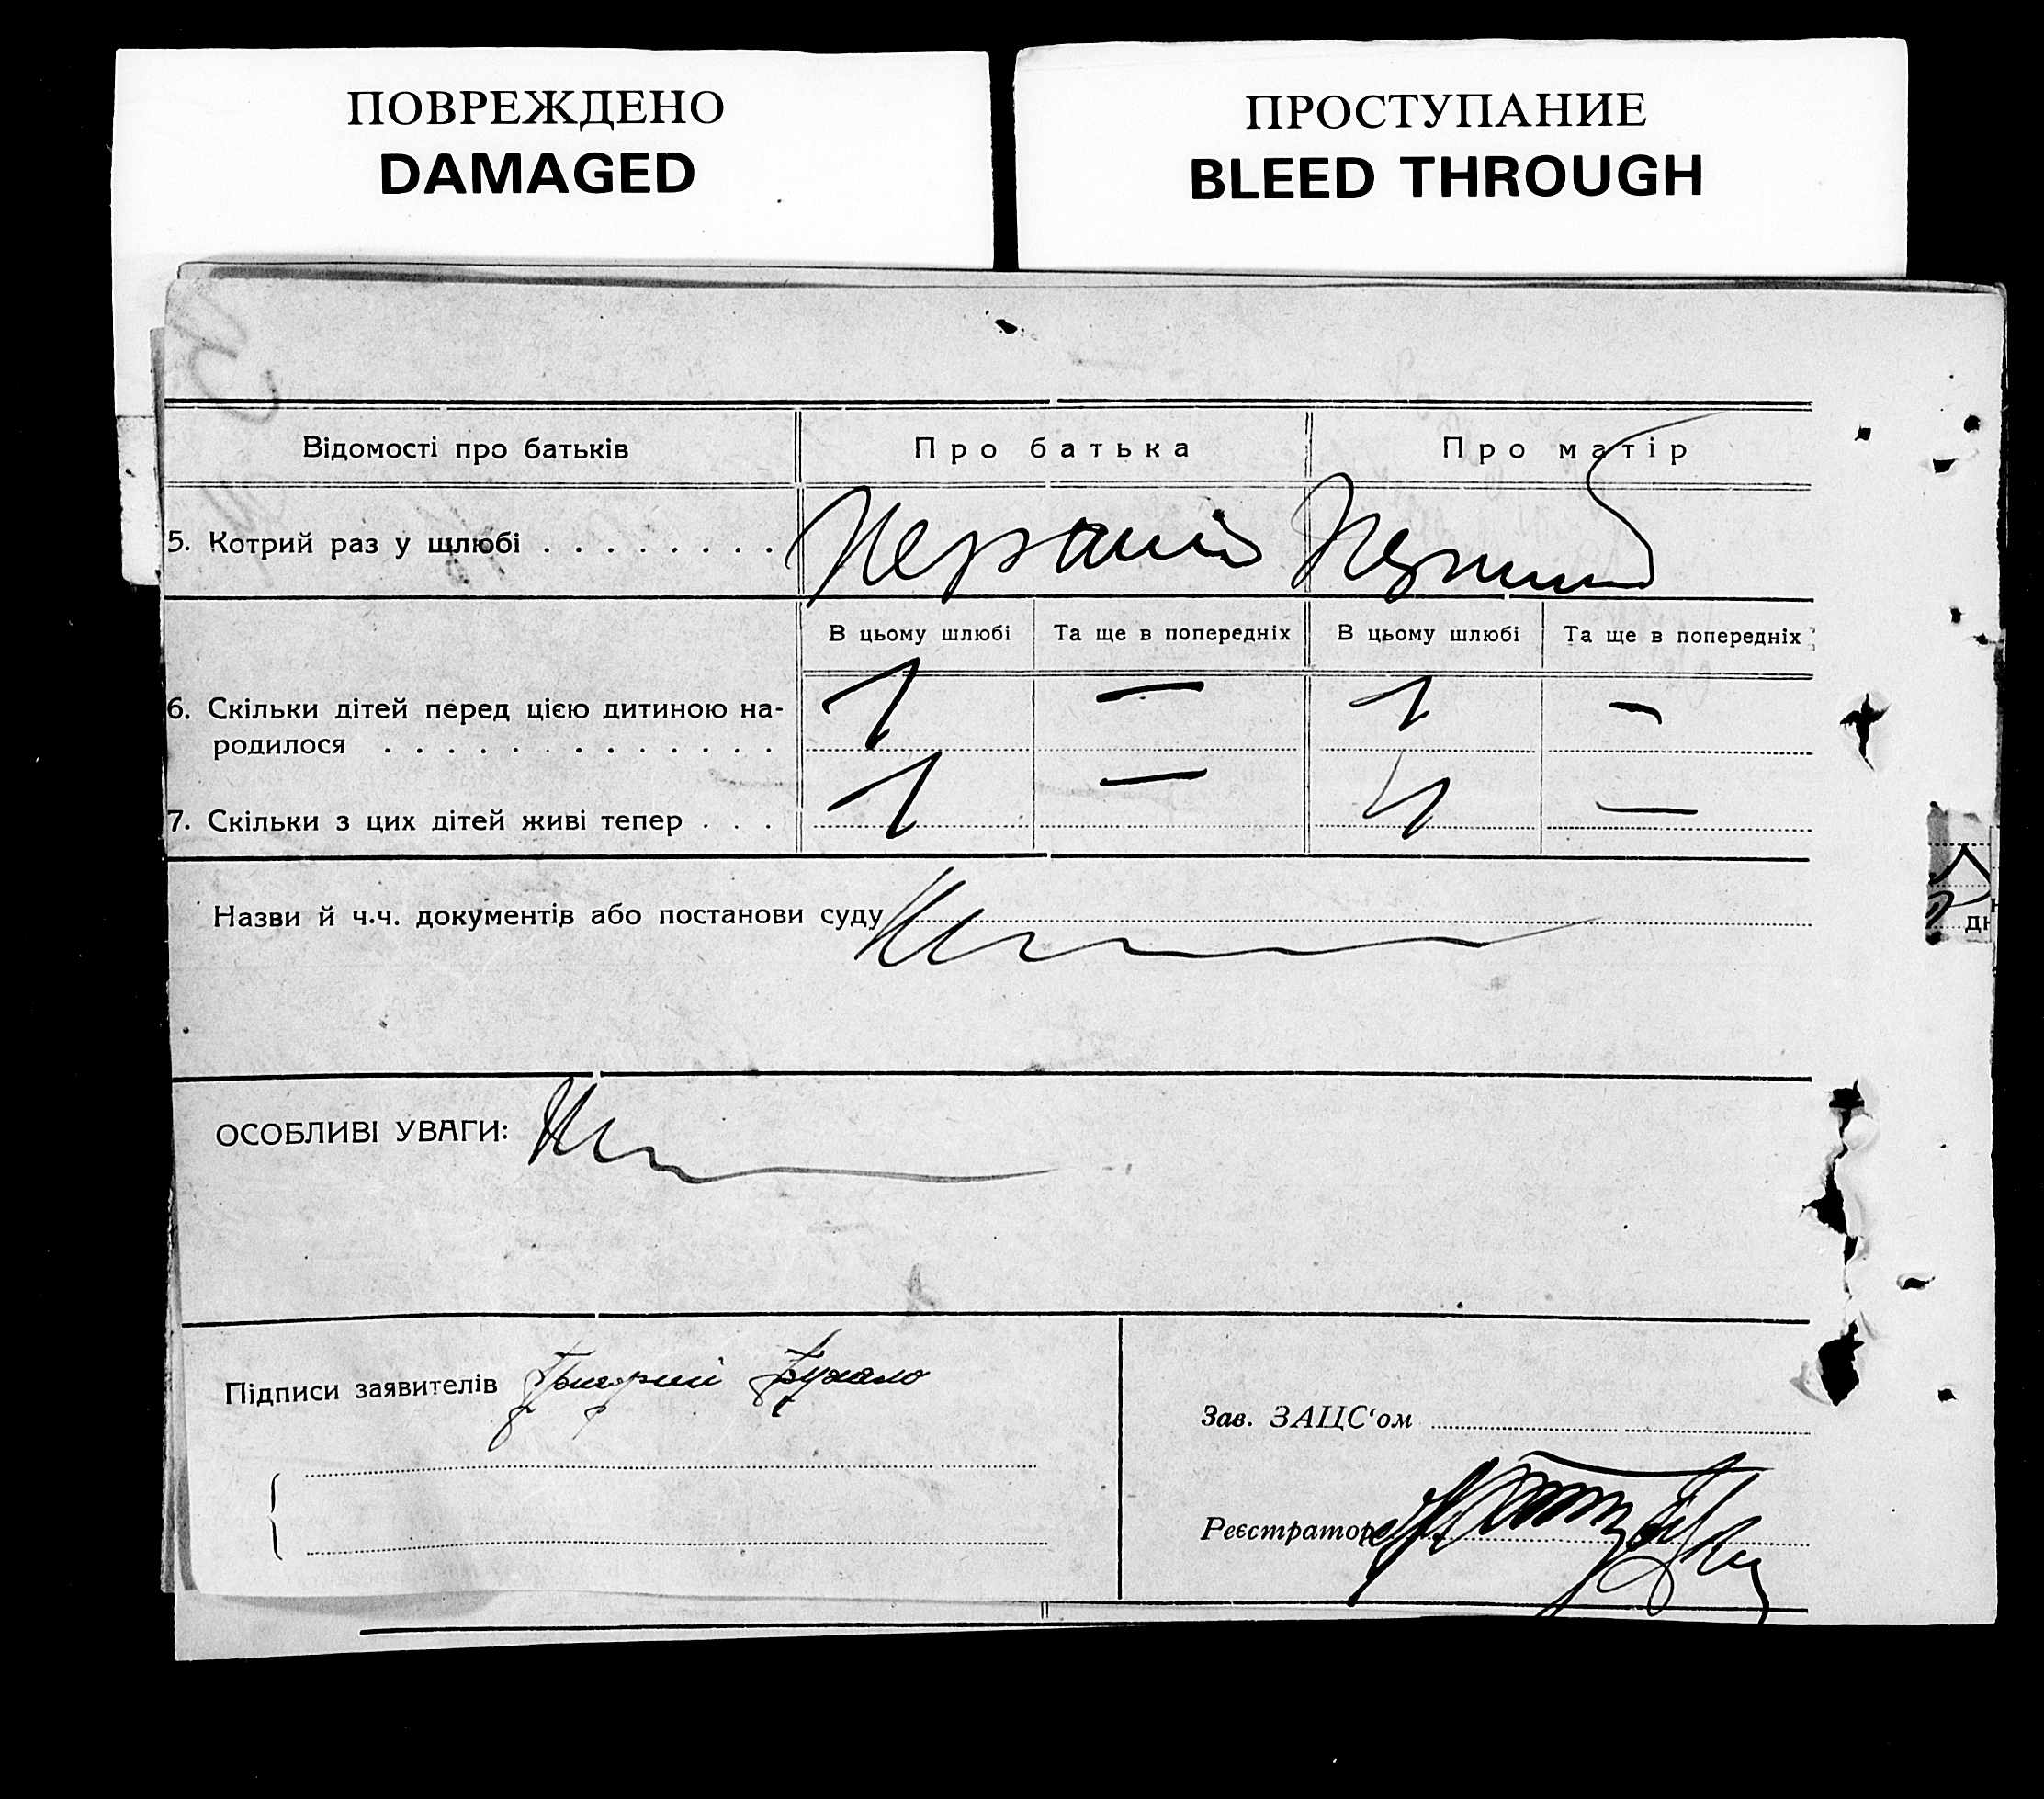 ПОВРЕЖДЕНО
DAMAGED
ПРОСТУПАНИЕ
BLEED THROUGH
Відомості про батьків
Про батька
Про матір
5. Котрий раз у шлюбі . . . . . . . .
Перший
Перший
В цьому шлюбі
Та ще в попередніх
В цьому шлюбі
Та ще в попередніх
6. Скільки дітей перед цією дитиною на-
родилося . . . . . . . . . . . . .
1 — 1 —
7. Скільки з цих дітей живі тепер . . .
1 — 1 —
Назви й ч.ч. документів або постанови суду
ОСОБЛИВІ УВАГИ:
Підписи заявителів Григорий
Зав. ЗАЦС‘ом
Реєстратор
дн